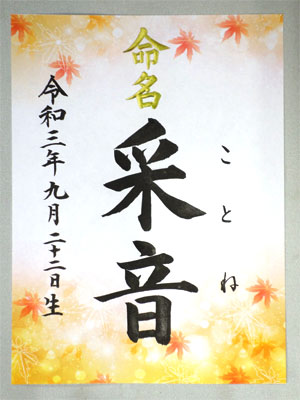 命名
ことね
采音
令和三年九月二十二日生